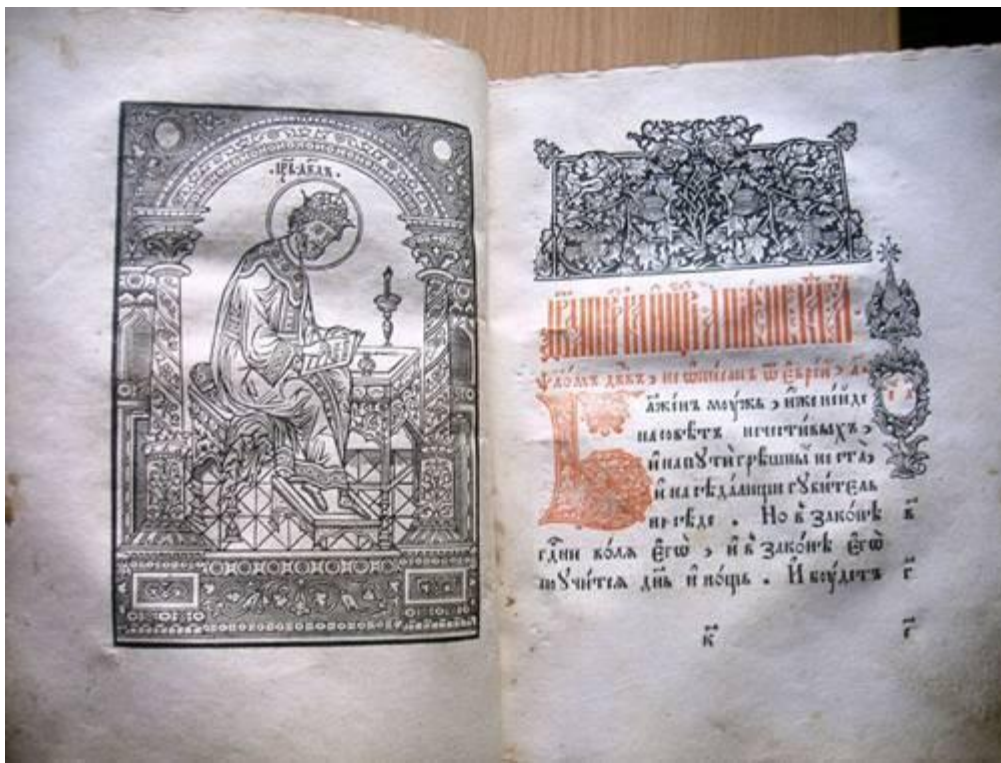 црь двдъ
ѱало́мъ дв҃дъ, не ѡ҆пи́санъ ѿ є҆врє́й, а҃
Б
лаже́нъ моу́жь, и҆́же не и҆́де
на совѣ́тъ нечести́выхъ,
и҆ на пꙋтѝ грѣ́шныⷯ не ста̀,
и҆ на сѣда́лищи гꙋби́тєль
не сѣ́де . Но в̾ зако́нѣ в҃
гдⷭ҇ни во́ля є҆гѡ̀, и҆ в̾ зако́нѣ є҆гѡ̀
поꙋчи́тсѧ дн҃ь и҆ но́щь . И҆ боу́детъ г҃
к҃ г҃